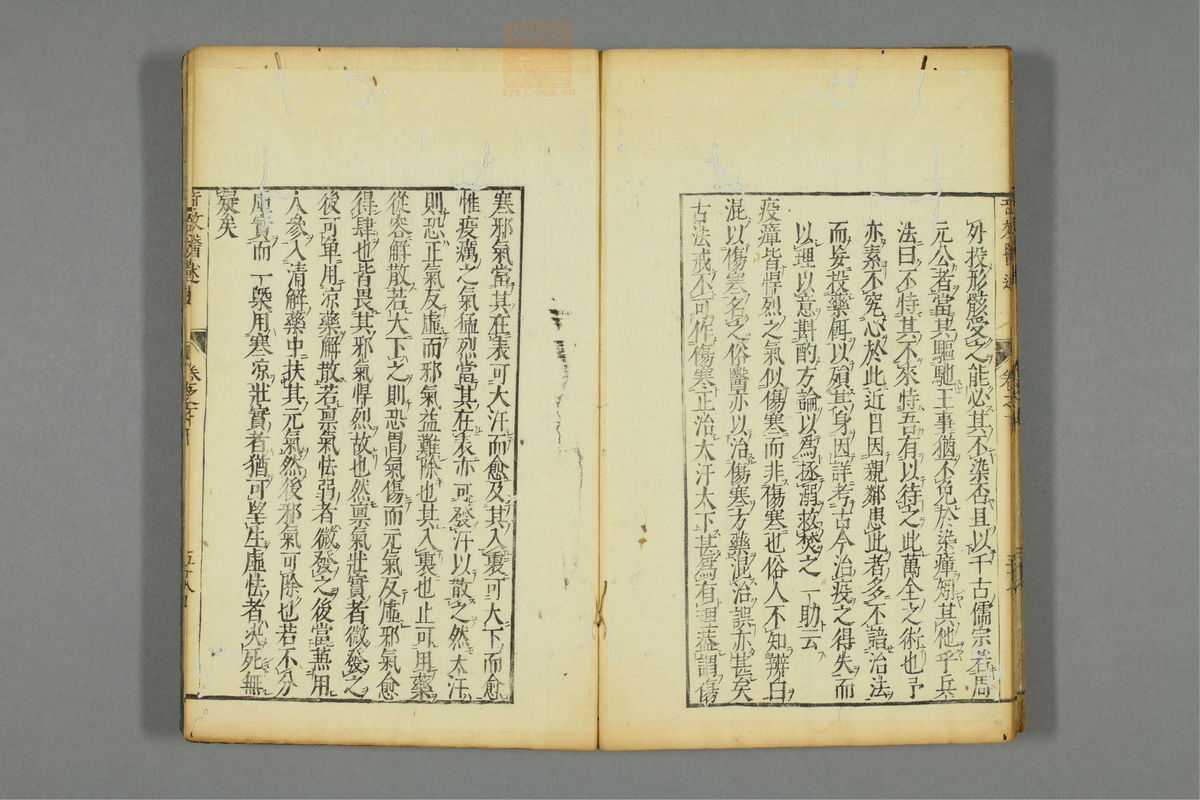 外投形骸受之能必其不染否且以千古儒宗若周
元公者當其驅馳王事猶不免於染瘴矧其他乎兵
法曰不恃其不來恃吾有以待之此萬全之術也予
亦素不究心於此近日因親鄰患此者多不諳治法
而妄投藥餌以殞其身因詳考古今治疫之得失而
以理以意斟酌方論以為拯溺救焚之一助云
疫瘴皆悍烈之氣似傷寒而非傷寒也俗人不知辨白
混以傷寒名之俗醫亦以治傷寒方藥混治誤亦甚矣
古法戒不可作傷寒正治大汗大下甚為有理蓋謂傷
寒邪氣當其在表可大汗而愈及其入裏可大下而愈
惟疫癘之氣猛烈當其在表亦可發汗以散之然大汗
則恐正氣反虛而邪氣益難除也其入裏也止可用藥
從容解散若大下之則恐胃氣傷而元氣反虛邪氣愈
得肆也皆畏其邪氣悍烈故也然禀氣壯實者微發之
後可單用凉藥解散若禀氣怯弱者微發之後當蒸用
人參入清解藥中扶其元氣然後邪氣可除也若不分
虛實而一槩用寒凉壯實者猶可望生虛怯者決死無
疑矣
五十八
zysj.com.cn